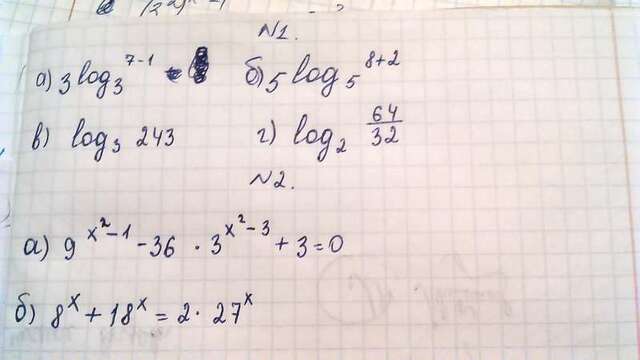 N1.
а) 3 log₃ 7-1
б) 5 log₅ 8+2
в) log₃ 243
г) log₂ 64/32
N2.
а) 9^(x²-1) - 36 · 3^(x²-3) + 3 = 0
б) 8^x + 18^x = 2 · 27^x